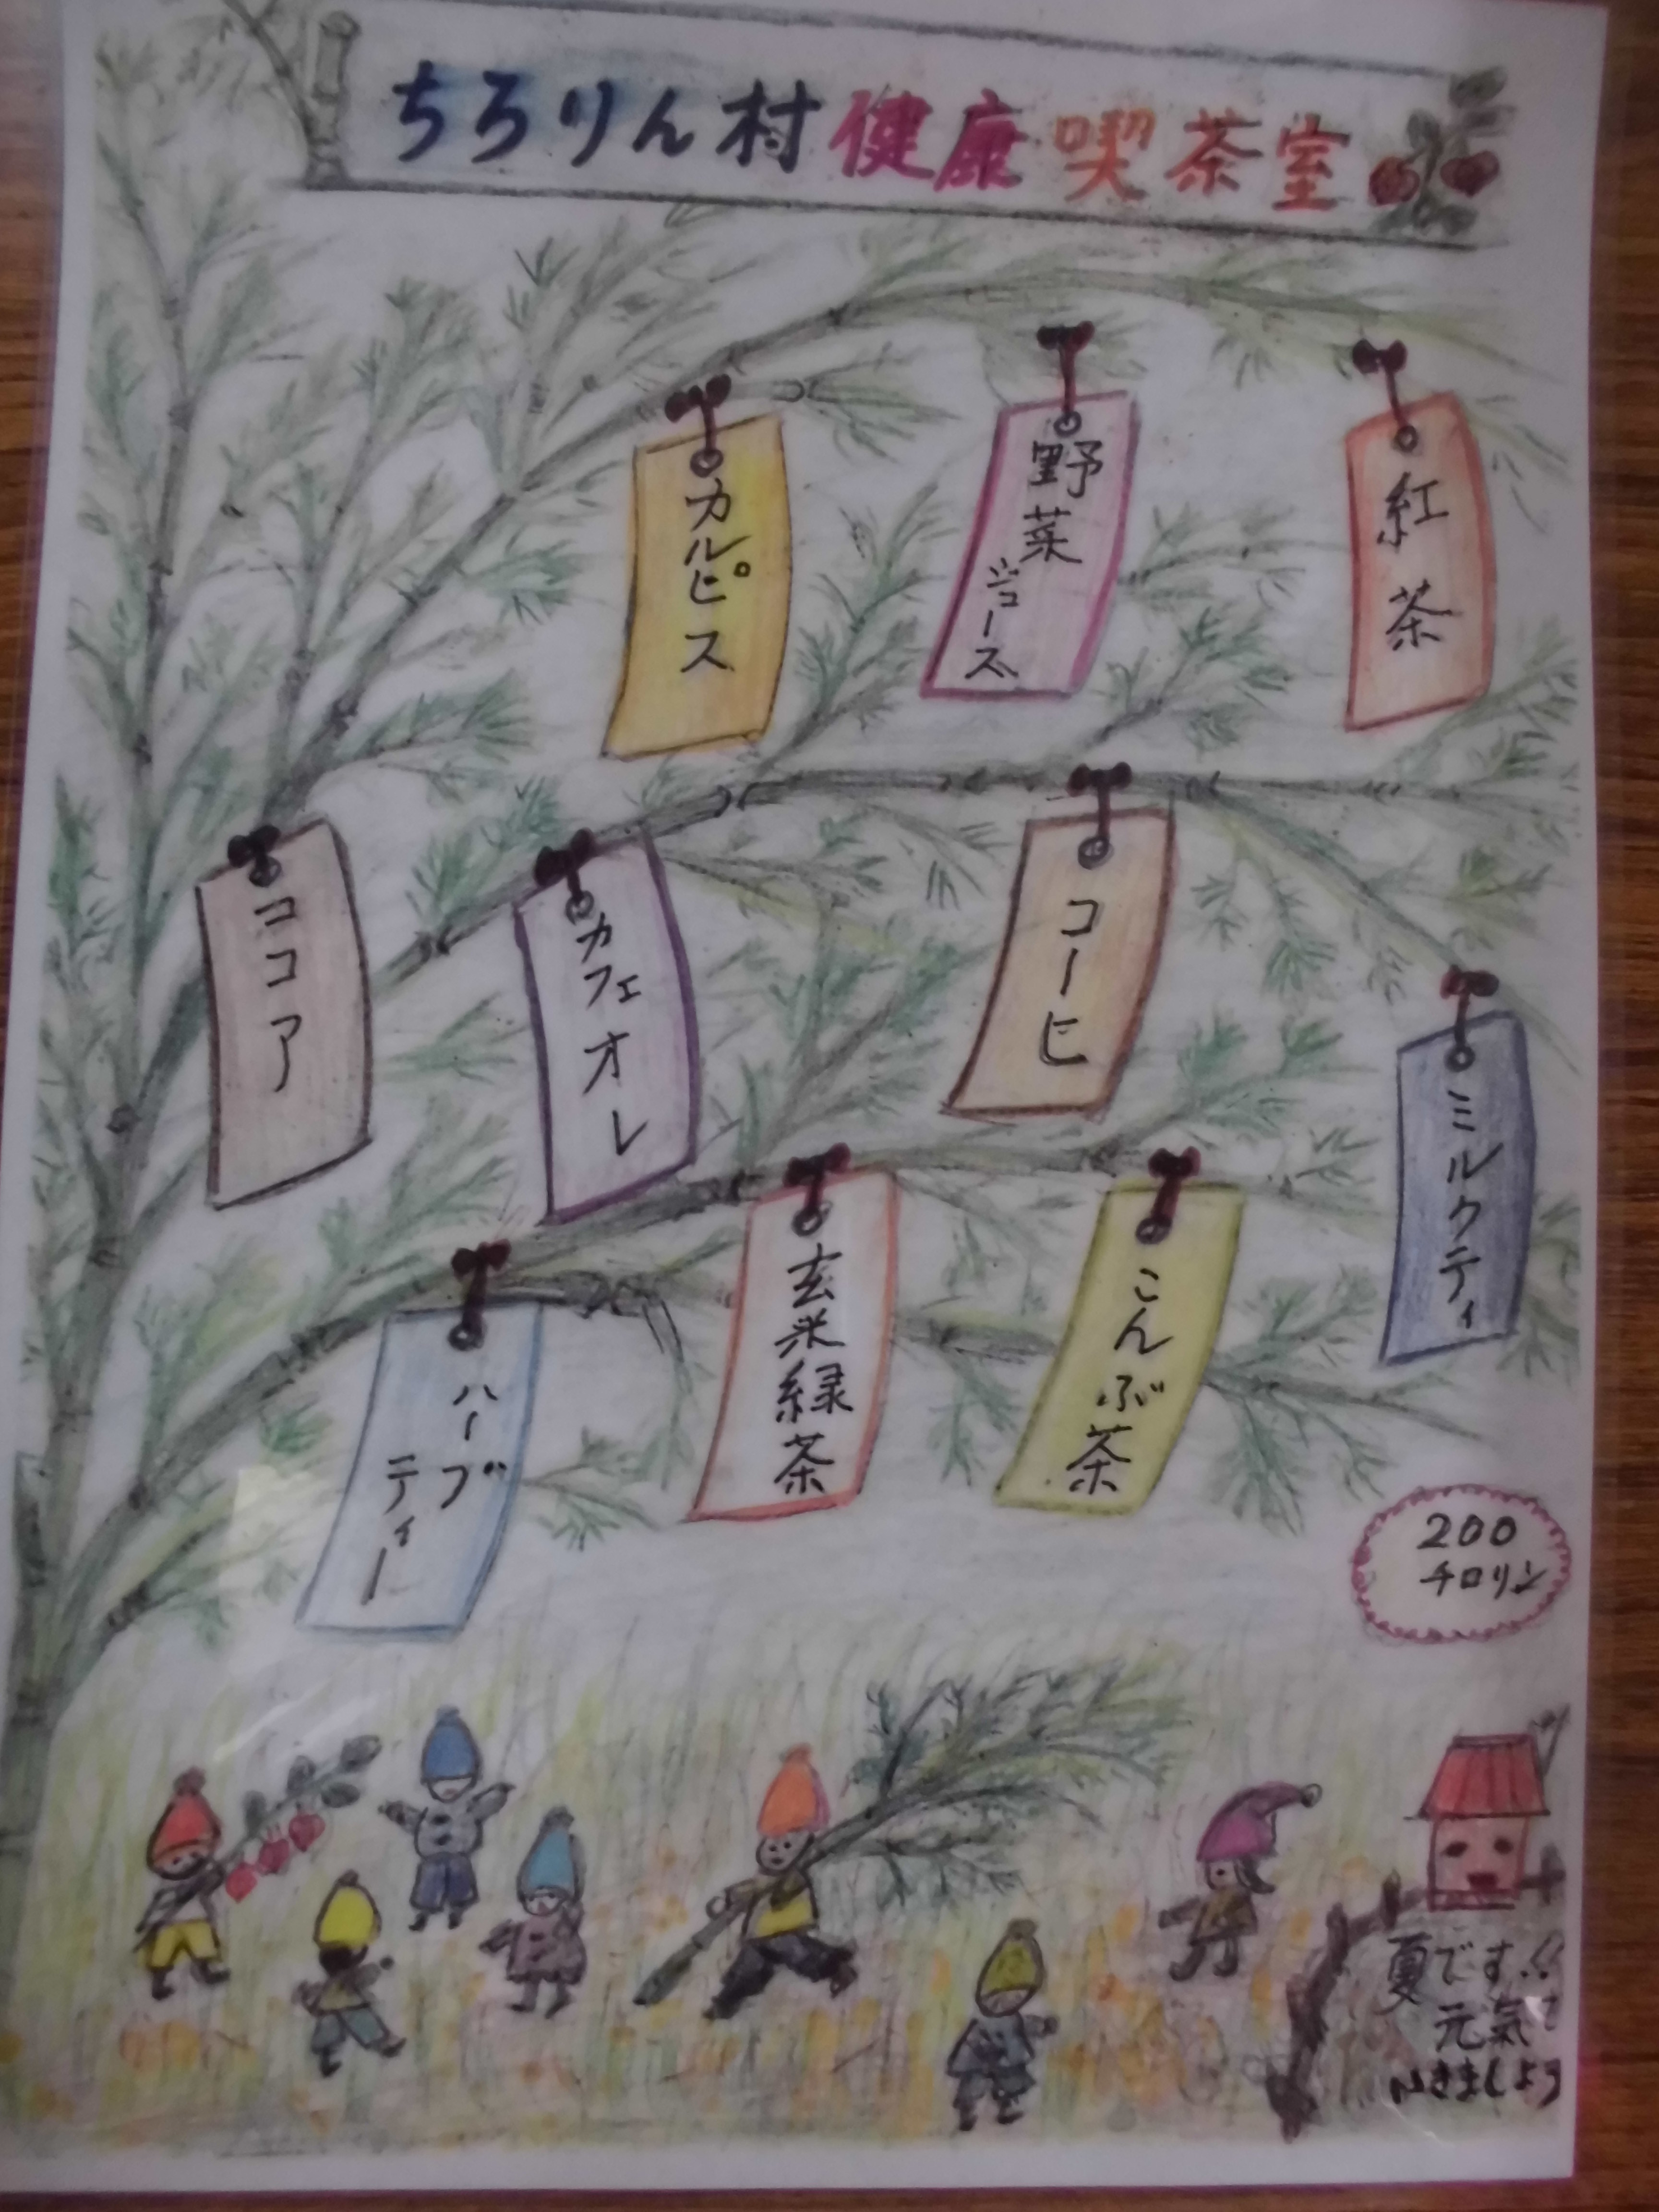 ちろりん村健康喫茶室
紅茶
野菜
ジュース
カルピス
ココア
カフェオレ
コーヒ
ミルクティ
ハーブ
ティー
玄米緑茶
こんぶ茶
200
チロリン
夏です!!
元氣で
いきましょう